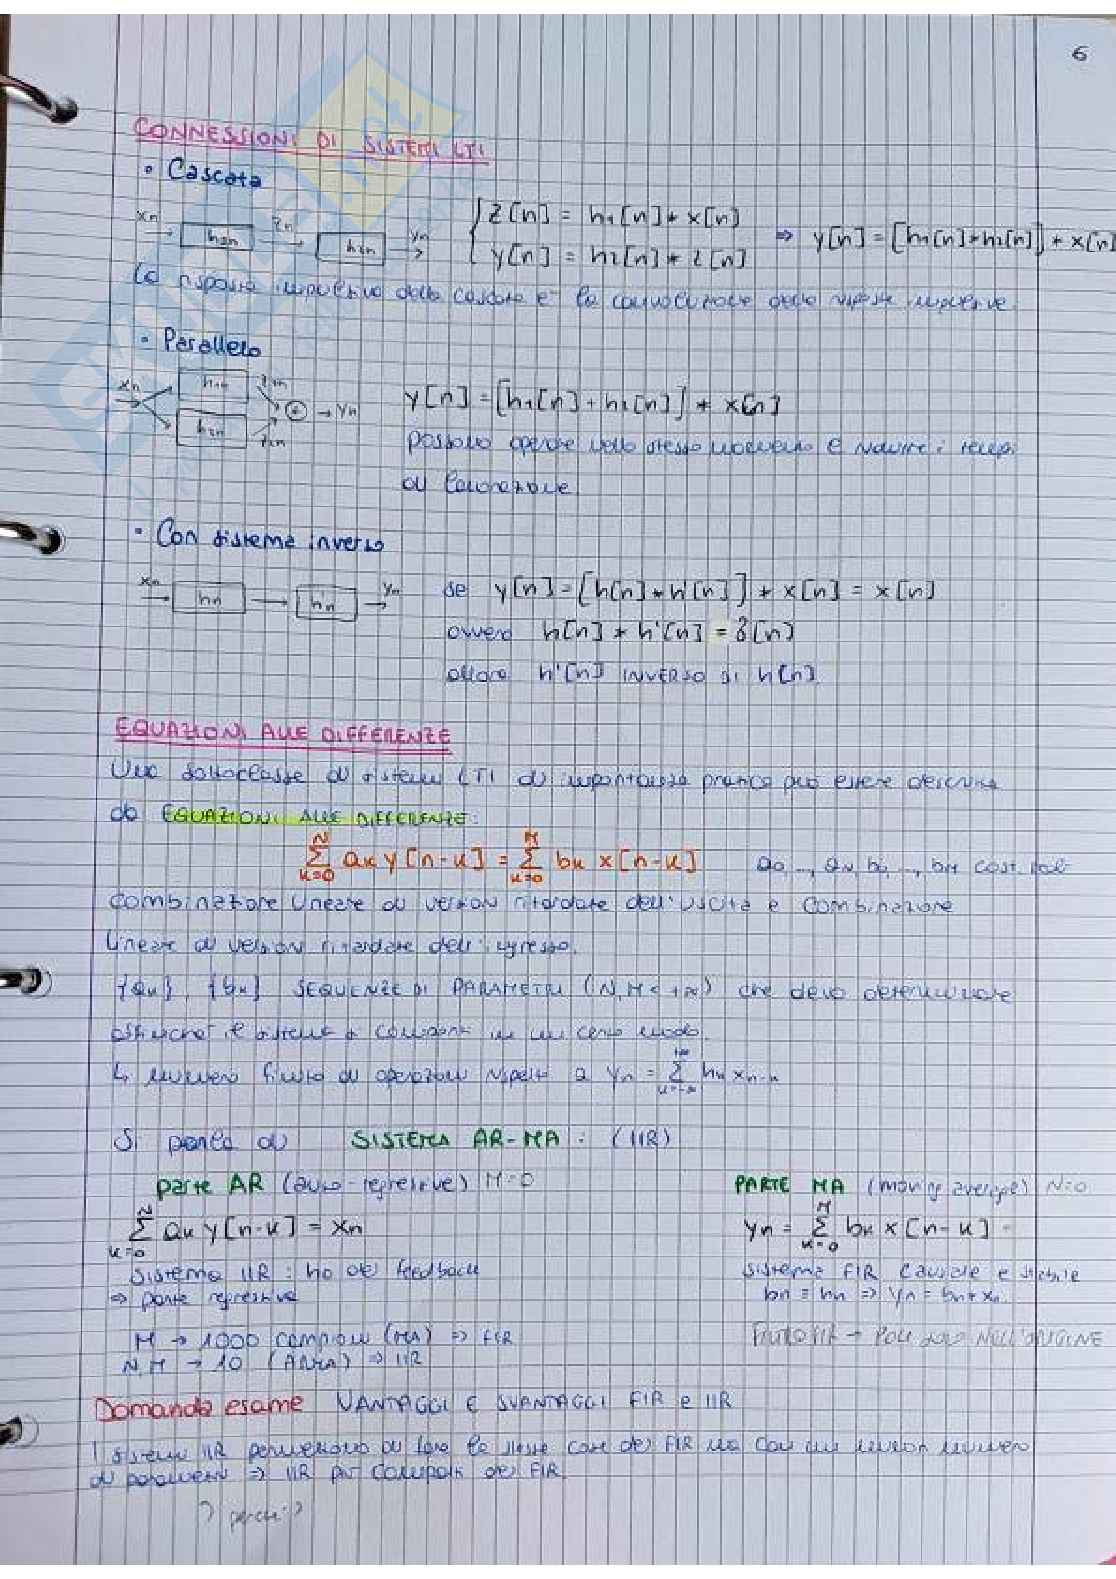 6
CONNESSIONI DI SISTEMI LTI
• Cascata
xn h1n zn h2n yn
z[n] = h1[n] * x[n]
y[n] = h2[n] * z[n] ⇒ y[n] = [h1[n] * h2[n]] * x[n]
La risposta impulsiva della cascata e' la convoluzione delle risposte impulsive
• Parallelo
xn h1n z1n h2n z2n + → yn
y[n] = [h1[n] + h2[n]] * x[n]
possono operare nello stesso momento e ridurre i tempi
di lavorazione
• Con sistema inverso
xn hn h'n yn
se y[n] = [h[n] * h'[n]] * x[n] = x[n]
ovvero h[n] * h'[n] = δ[n]
allora h'[n] INVERSO DI h[n]
EQUAZIONI ALLE DIFFERENZE
Una sottoclasse di sistemi LTI di importanza pratica può essere descritta
da EQUAZIONI ALLE DIFFERENZE:
∑ k=0 N ak y[n-k] = ∑ k=0 M bk x[n-k] a0, ..., aN, b0, ..., bM cost.
combinazione lineare di versioni ritardate dell'uscita e combinazione
lineare di versioni ritardate dell'ingresso.
{ak}, {bk} SEQUENZE DI PARAMETRI (N, M < +∞) che devo determinare
affinchè il sistema si comporti in un certo modo.
↳ numero finito di operazioni rispetto a yn = ∑ k=-∞ +∞ hk xn-k
Si parla di SISTEMA AR-MA : (IIR)
parte AR (auto-regressive) M=0
∑ k=0 N ak y[n-k] = xn
Sistema IIR : ho del feedback
⇒ parte regressiva
M → 1000 campioni (MA) ⇒ FIR
N, M → 10 (ARMA) ⇒ IIR
PARTE MA (moving average) N=0
yn = ∑ k=0 M bk x[n-k]
sistema FIR causale e stabile
bn = hn ⇒ yn = bn * xn
→ POLI SOLO NELL'ORIGINE
Domanda esame VANTAGGI E SVANTAGGI FIR e IIR
I sistemi IIR permettono di fare le stesse cose dei FIR ma con un minor numero
di parametri ⇒ IIR più compatti dei FIR
perchè?